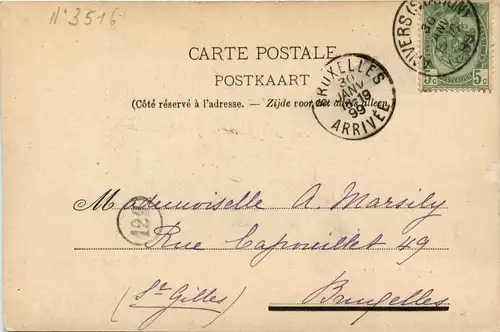 N° 3516
ANVERS (STATION)
5c 5c
CARTE POSTALE
POSTKAART
(Côté réservé à l'adresse. — Zijde voor het adres alleen.
BRUXELLES
30
JANV
18-19
99
ARRIVÉE
Mademoiselle A. Marsily
129
Rue Capouillet 49
(St Gilles) Bruxelles